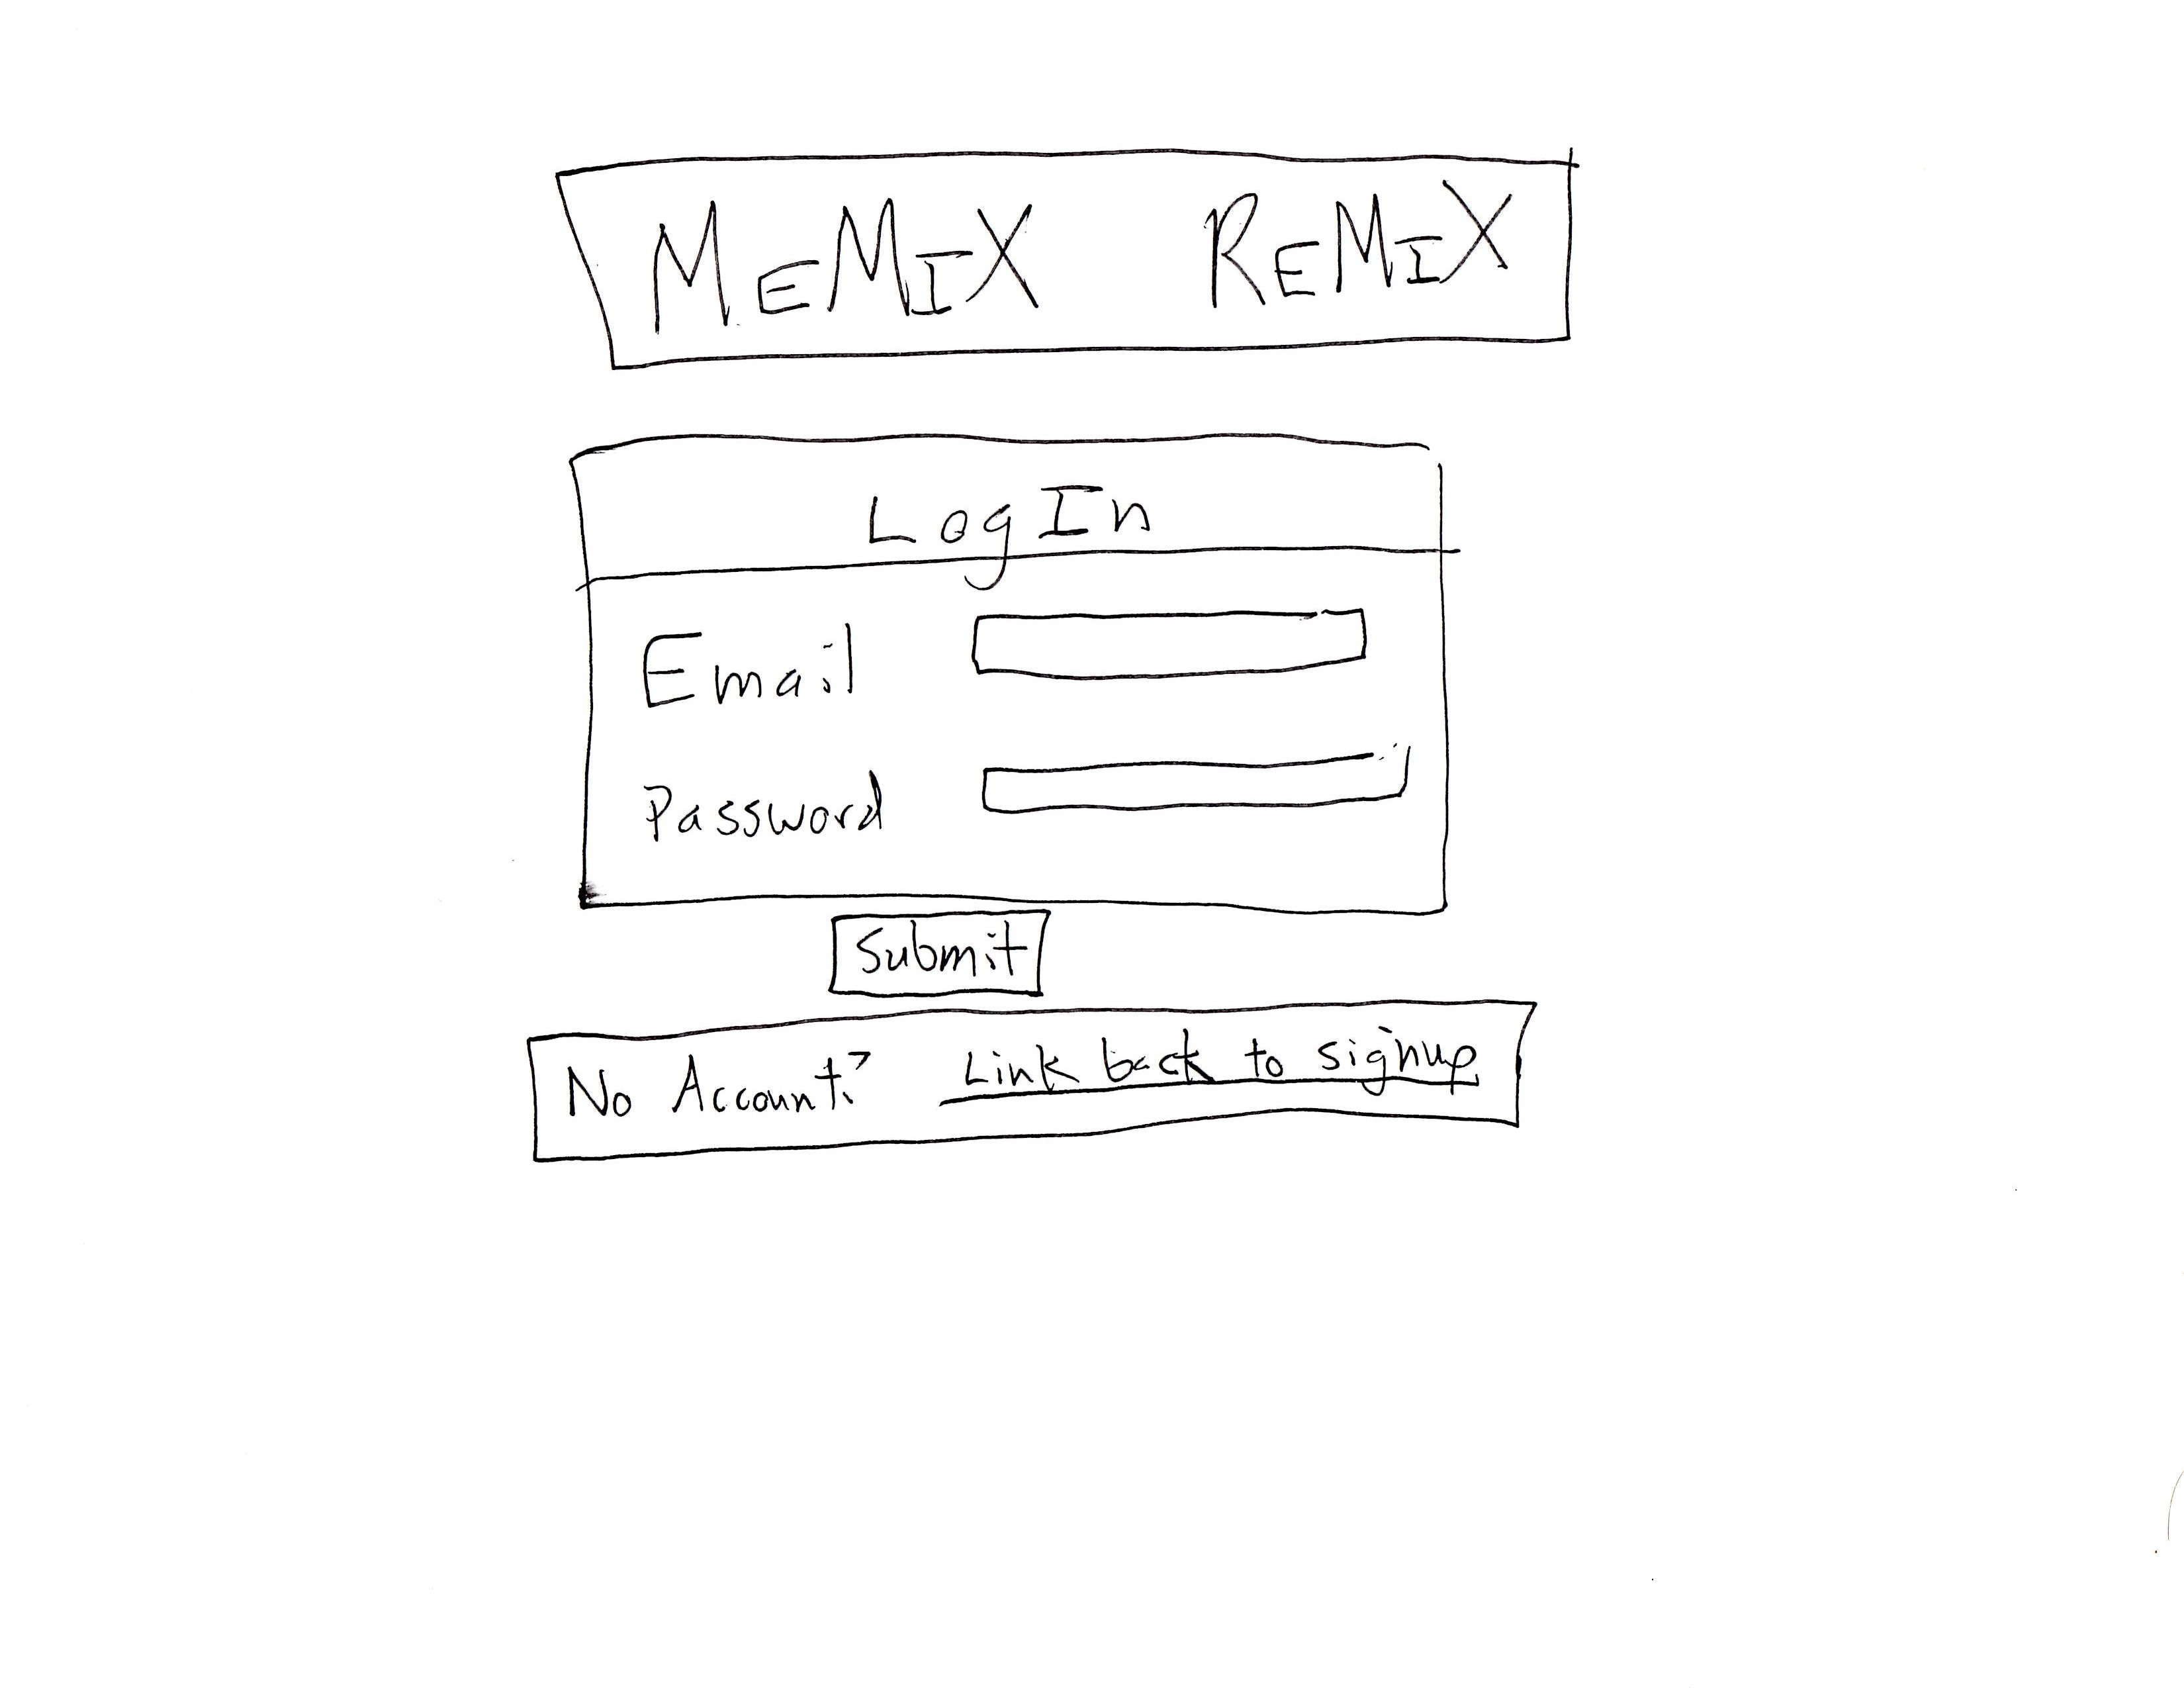 MeMiX ReMiX
Log In
Email
Password
Submit
No Account? Link back to signup